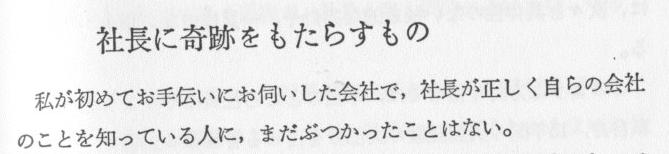 社長に奇跡をもたらすもの
私が初めてお手伝いにお伺いした会社で，社長が正しく自らの会社
のことを知っている人に，まだぶつかったことはない。